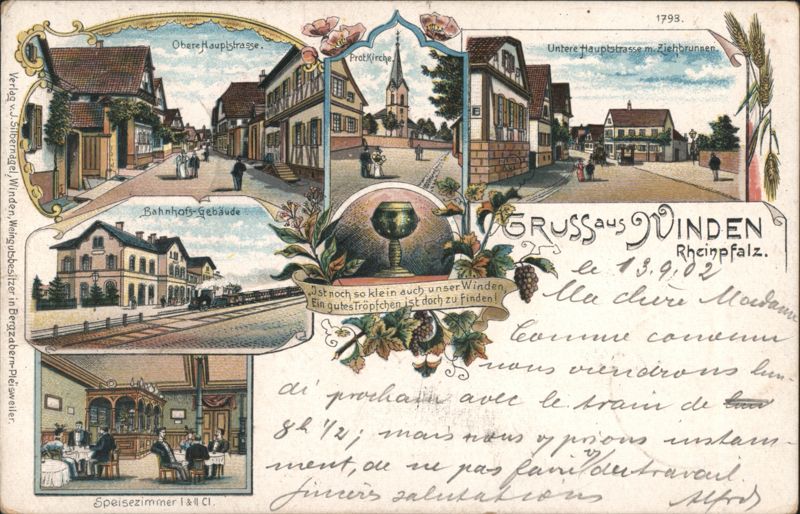 1793.
Obere Hauptstrasse.
Prot. Kirche
Untere Hauptstrasse m. Ziehbrunnen.
Verlag v. J. Silbernagel, Winden, Weingutsbesitzer in Bergzabern-Pleisweiler.
Bahnhofs-Gebäude.
GRUSS aus WINDEN
Rheinpfalz.
Ist noch so klein auch unser Winden,
Ein gutes Tröpfchen ist doch zu finden!
Speisezimmer I & II Cl.
le 13.9.02
Ma chère Madame
Comme convenu
nous viendrons lun-
di prochain avec le train de
8h 1/2; mais nous vs prions instam-
ment, de ne pas faire du travail.
Sincères salutations
Alfred